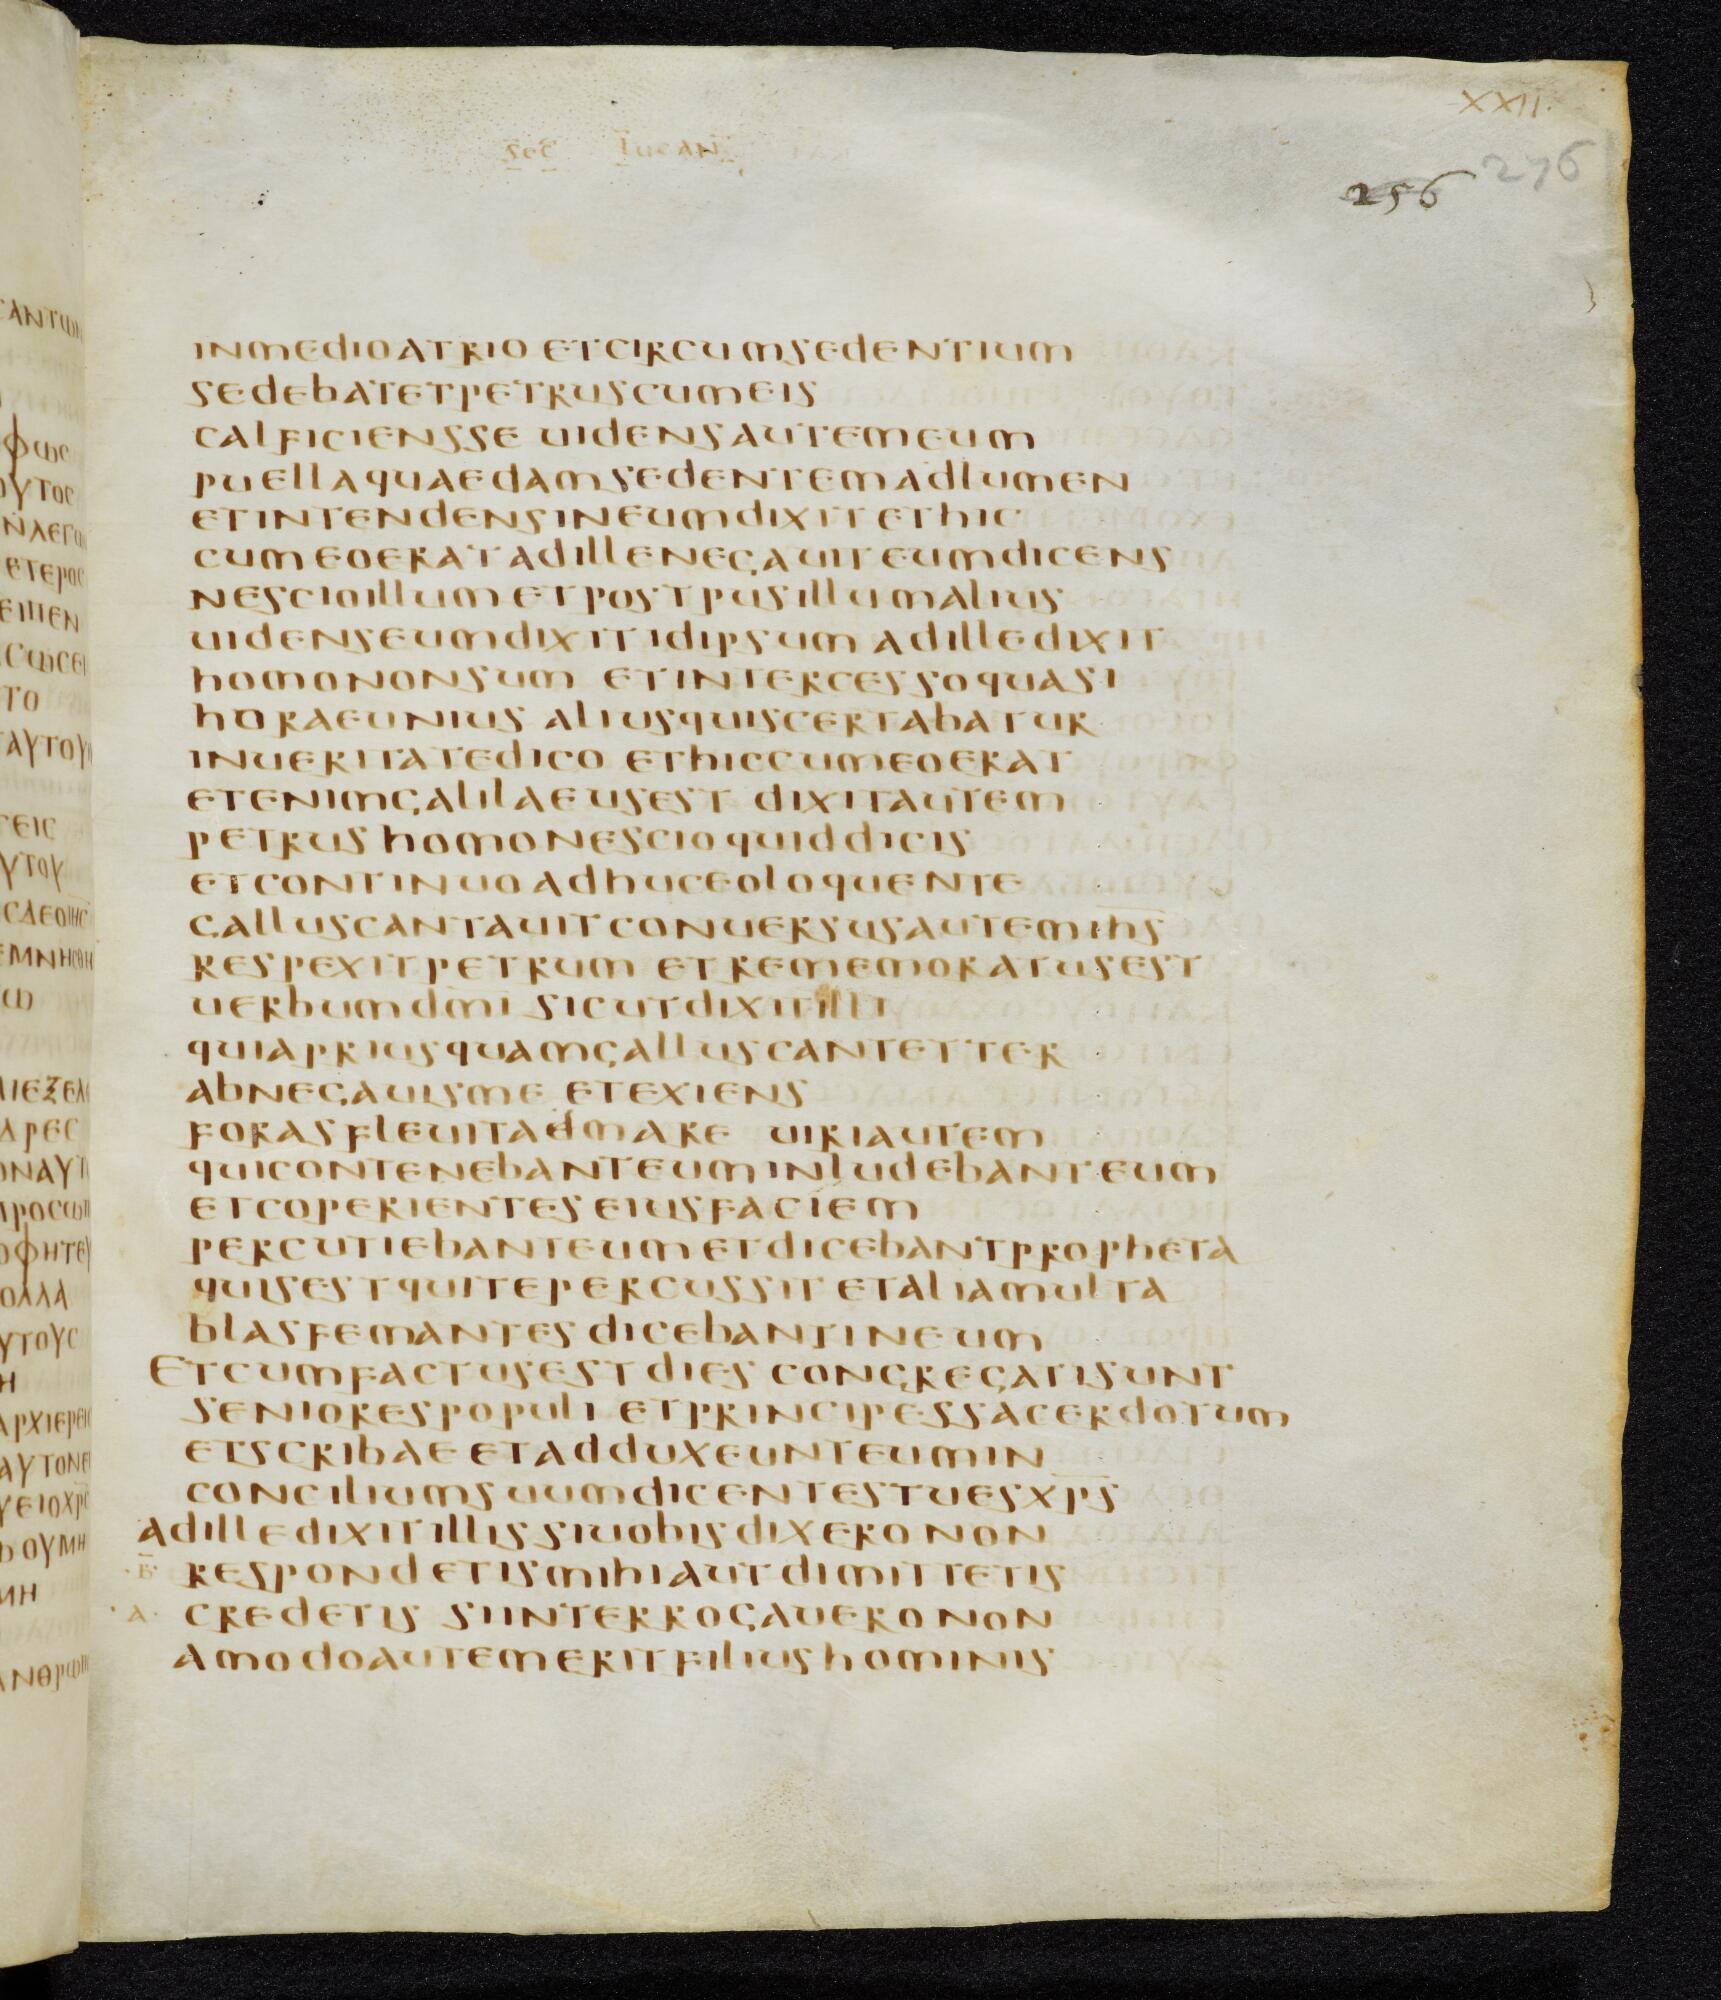 XXII.
sec lucan
276
256
inmedioatrio etcircumsedentium
sedebatetpetruscumeis
calficiensse uidensautemeum
puellaquaedamsedentemadlumen
etintendensineumdixit ethic
cumeoerat adillenegauit eumdicens
nescioillum etpostpusillumalius
uidenseumdixit idipsum adilledixit
homononsum etintercessoquasi
horaeunius aliusquiscertabatur
inueritatedico ethiccumeoerat
etenimgalilaeusest dixitautem
petrus homonescioquiddicis
etcontinuoadhuceoloquente
galluscantauitconuersusautemih̅s̅
respexitpetrum etrememoratusest
uerbumdm̅i sicutdixitilli
quiapriusquamgalluscantetter
abnegauisme etexiens
forasfleuitaemare uiriautem
quicontenebanteuminludebanteum
etcoperienteseiusfaciem
percutiebanteumetdicebantpropheta
quisestquitepercussit etaliamulta
blasfemantesdicebantineum
Etcumfactusestdies congregatisunt
seniorespopuli etprincipessacerdotum
etscribae etadduxeunteumin
conciliumsuumdicentestuesxp̅s̅
adilledixitillissiuobisdixeronon
·B̅· respondetismihiautdimittetis
·A· credetis siinterrogaueronon
amodoautemeritfiliushominis